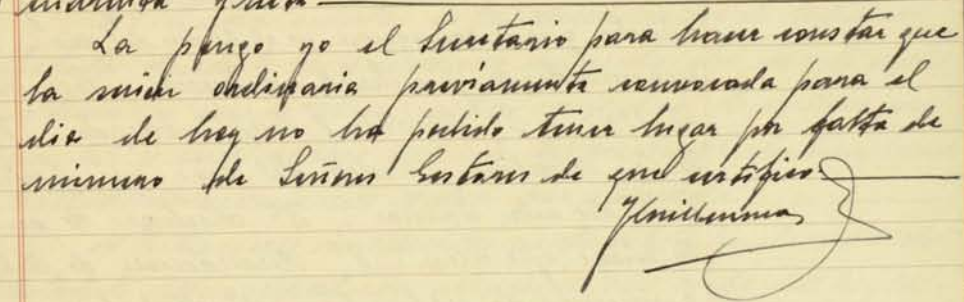 La pongo yo el Secretario para hacer constar que
la sesión ordinaria previamente convocada para el
dia de hoy no ha podido tener lugar por falta de
número de Señores Gestores de que certifico.